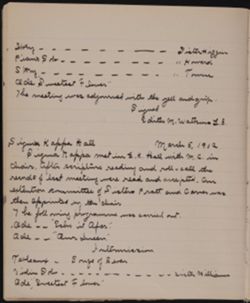 Story - - - - - - - - Sister Huggin
Piano Solo - - - - - - - " Howard
Story - - - - - - - - " Towne
Ode Sweetest Flower
The meeting was adjourned with the yell and grip.
Signed
Edith M. Watkins
Sigma Kappa Hall March 5, 1912
Sigma Kappa met in S.K. Hall with M.C. in
chair. After scripture reading and roll call the
records of last meeting were read and accepted. An
committee of Sisters Pratt and Carver was
then appointed by the chair
The following programme was carried out.
Ode - -
Ode - - Our Queen
Intermission
Tableaux - Songs of Seven
Violin Solo - - - - - - - Williams
Ode Sweetest Flower